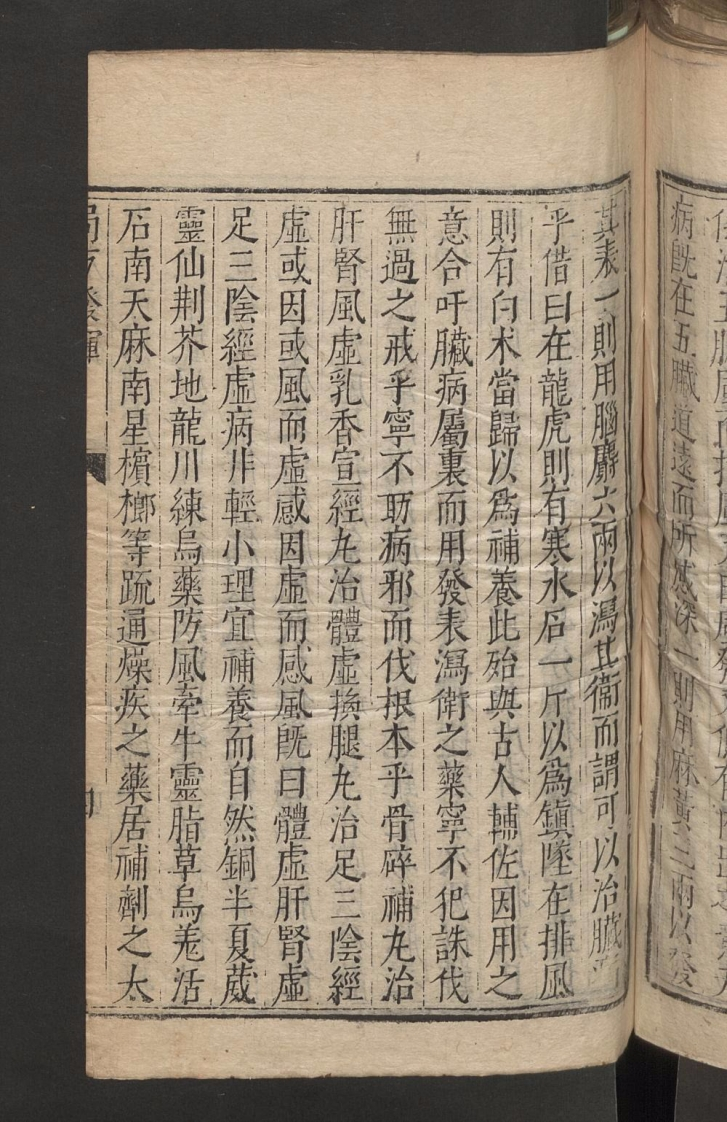 病既在五臟道遠而所感深一則用麻黃三兩以發
其表一則用腦麝六兩以瀉其衛而謂可以治臟
乎借曰在龍虎則有寒水石一斤以爲鎮墜在排風
則有白术當歸以爲補養此殆與古人輔佐因用之
意合吁臟病屬裏而用發表瀉衛之藥寧不犯誅伐
無過之戒乎寧不助病邪而伐根本乎骨碎補丸治
肝腎風虛乳香宣經丸治體虛換腿丸治足三陰經
虛或因或風而虛感因虛而感風旣曰體虛肝腎虛
足三陰經虛病非輕小理宜補養而自然銅半夏葳
靈仙荆芥地龍川練烏藥防風牽牛靈脂草烏羌活
石南天麻南星檳榔等疏通燥疾之藥居補劑之太
局方發揮